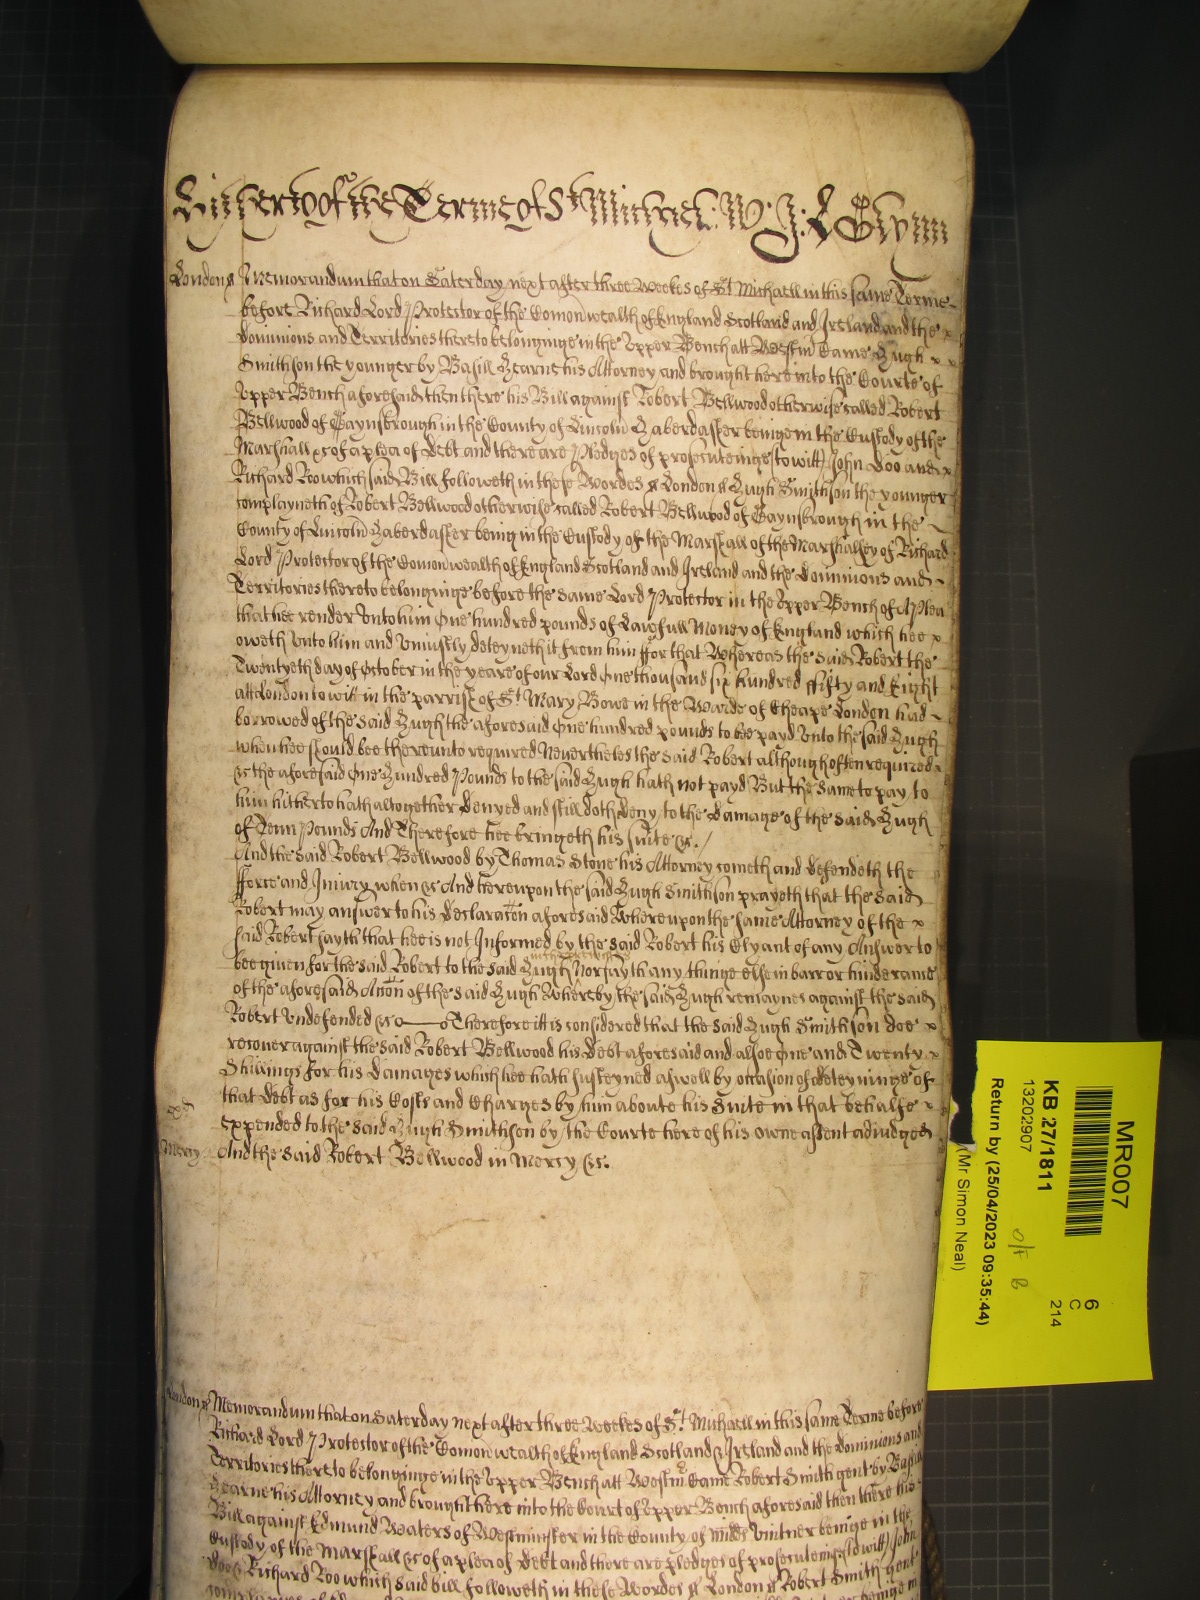 Hitherto of the Terme of St Michael: W: J: D Glynn
London ss Memorandum that on Saterday next after three Weekes of St Michaell in this same Terme
before Richard Lord Protector of the Comonwealth of England Scotland and Ireland and the x
Dominions and Territories thereto belonginge in the Upper Bench att Westm Came Hugh x x
Smithson the younger by Basill Hearne his Attorney and brought here into the Courte of
Upper Bench aforesaid then there his Bill against Robert Bellwood otherwise called Robert
Bellwood of Gaynsbrough in the County of Lincoln Haberdasher beinge in the Custody of the
Marshall &c of a plea of Debt and there are Pledges of prosecuteinge (to witt) John Doo and x
Richard Roo which said Bill followeth in these Wordes ss London ss Hugh Smithson the younger
complayneth of Robert Bellwood otherwise called Robert Bellwood of Gaynsbrough in the
County of Lincoln Haberdasher being in the Custody of the Marshall of the Marshalsey of Richard
Lord Protector of the Comonwealth of England Scotland and Ireland and the Dominions and
Territories thereto belonginge before the same Lord Protector in the Upper Bench of A Plea
that hee render Unto him One hundred pounds of Lawfull Money of England which hee x
oweth Unto him and Uniustly deteyneth it from him ffor that Whereas the said Robert the
Twentyeth day of October in the yeare of our Lord One thousand six hundred ffifty and Eight
att London to witt in the parrish of St Mary Bowe in the Warde of Cheape London had
borrowed of the said Hugh the aforesaid One hundred pounds to bee payd Unto the said Hugh
when hee should bee thereunto required Neverthelesse the said Robert although often required
&c the aforesaid One Hundred Pounds to the said Hugh hath not payd But the same to pay to
him hitherto hath altogether Denyed and still doth Deny to the Damage of the said Hugh
of Tenn Pounds And Therefore hee bringeth his suite &c.
And the said Robert Bellwood by Thomas Stone his Attorney cometh and defendeth the
fforce and Iniury when &c And thereupon the said Hugh Smithson prayeth that the said
Robert may answer to his Declaracon aforesaid Whereupon the same Attorney of the x
said Robert sayth that hee is not Informed by the said Robert his Clyant of any Answer to
bee given for the said Robert to the said Hugh Nor sayth any thinge else in barr or hinderance
of the aforesaid Accon of the said Hugh Whereby the said Hugh remaynes against the said
Robert Undefended &c Therefore itt is considered that the said Hugh Smithson doe x
recover against the said Robert Bellwood his Debt aforesaid and alsoe One and Twenty x
Shillings for his Damages which hee hath susteyned aswell by occasion of deteyninge of
that Debt as for his Costs and Charges by him aboute his Suite in that behalfe x
expended to the said Hugh Smithson by the Courte here of his owne assent adiudged
Mercy And the said Robert Bellwood in Mercy &c.
London ss Memorandum that on Saterday next after three Weekes of St Michaell in this same Terme before
Richard Lord Protector of the Comonwealth of England Scotland & Ireland and the Dominions and
Territories thereto belonginge in the Upper Bench att Westm Came Robert Smith gent by Basill
Hearne his Attorney and brought here into the Court of Upper Bench aforesaid then there his
Bill against Edmund Waters of Westminster in the County of Midds Vintner beinge in the
Custody of the Marshall &c of a plea of Debt and there are pledges of prosecuteing (to witt) John
Doo & Richard Roo which said bill followeth in these Wordes ss London ss Robert Smith gent
MR007
6
C
214
KB 27/1811
13202907
o/f B
Return by (25/04/2023 09:35:44)
(Mr Simon Neal)